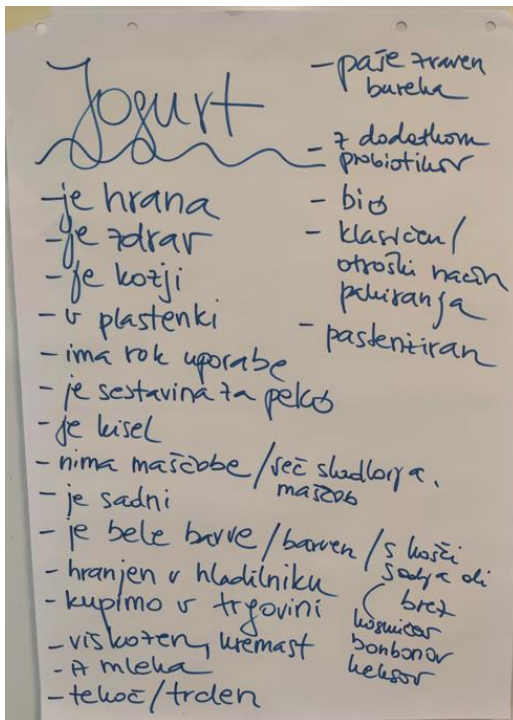 Jogurt
- je hrana
- je zdrav
- je kozji
- v plastenki
- ima rok uporabe
- je sestavina za peko
- je kisel
- nima maščobe / več sladkorja,
maščob
- je sadni
- je bele barve / barven / s košči
sadja ali
brez
kosmičev
bonbonov
keksov
- hranjen v hladilniku
- kupimo v trgovini
- viskozen, kremast
- A mleka
- tekoč / trden
- paše zraven
bureka
- z dodatkom
probiotikov
- bio
- klasičen /
otroški način
pakiranja
- pasteriziran